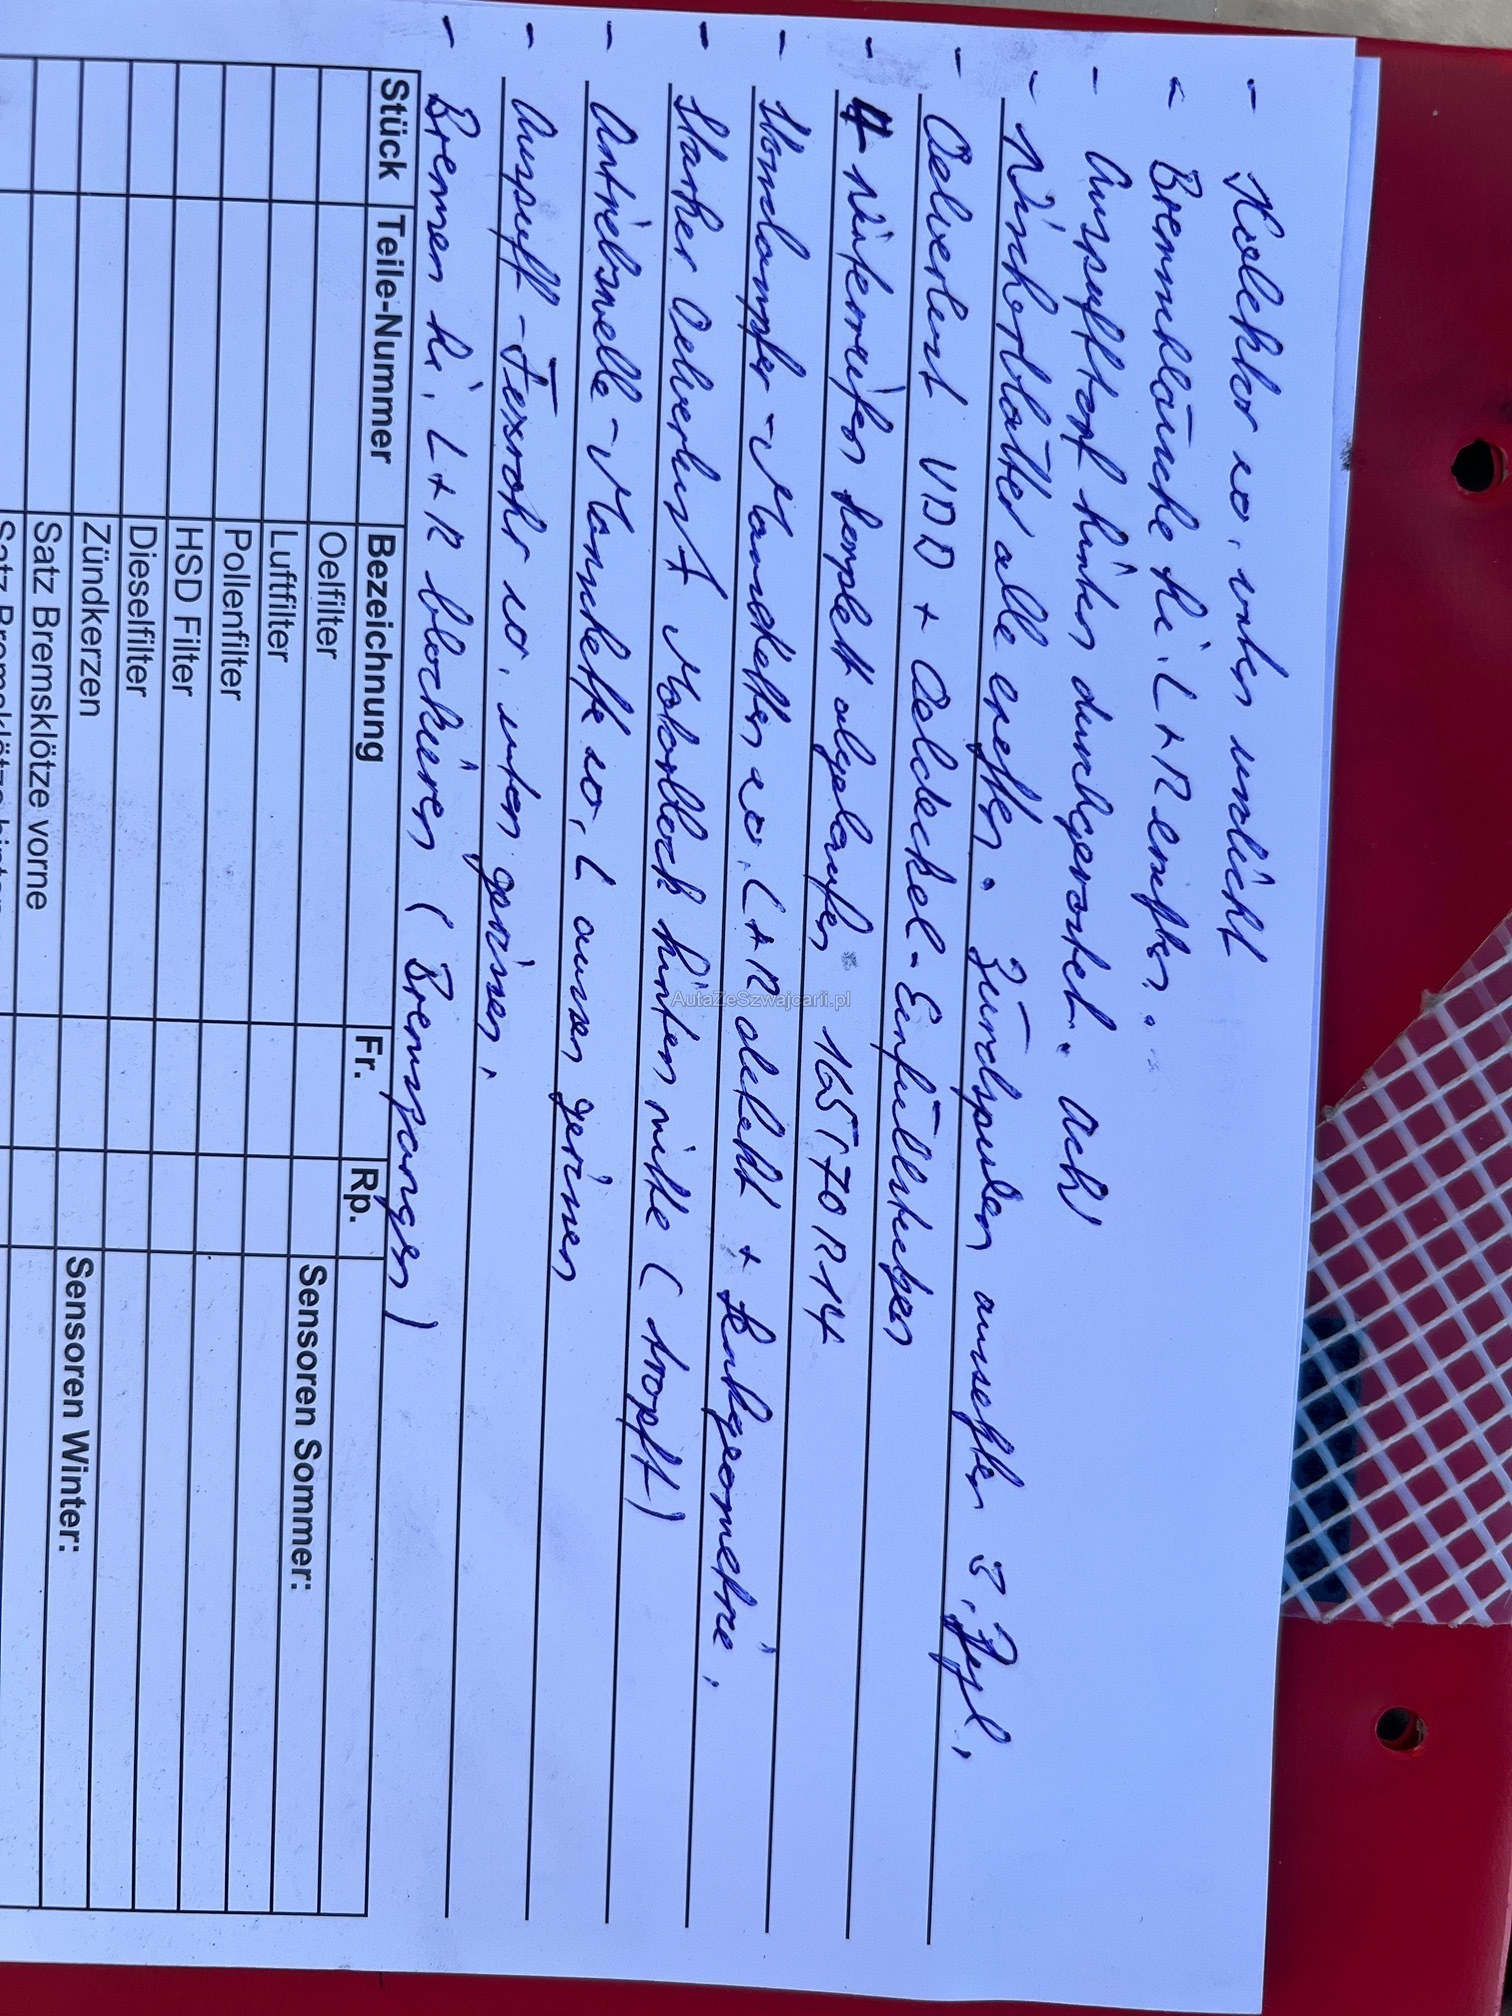 - Kolektor vo. unten undicht
- Bremschläuche hi. L+R ersetzen.
- Auspufftopf hinten durchgerostet. ach!
- Wischerblätter alle ersetzen. Zündspulen ersetzen 3. Zyl.
- Oelverlust VDD + Oeldeckel-Einfüllstutzen
- 4 Winterreifen komplett abgelaufen 165 70 R14
- Stossdämpfer-Manschetten vo. L+R defekt + Fahrgeometrie.
- Starker Oelverlust Motorblock hinten mitte (tropft)
- Antriebswelle-Manschette vo. L aussen gerissen
- Auspuff-Flexrohr vo. unten gerissen.
- Bremsen hi. L+R blockieren (Bremszangen)
Stück Teile-Nummer Bezeichnung Fr. Rp.
Oelfilter
Sensoren Sommer:
Luftfilter
Pollenfilter
HSD Filter
Dieselfilter
Zündkerzen
Sensoren Winter:
Satz Bremsklötze vorne
Satz Bremsklötze hinten
AutaZeSzwajcarii.pl